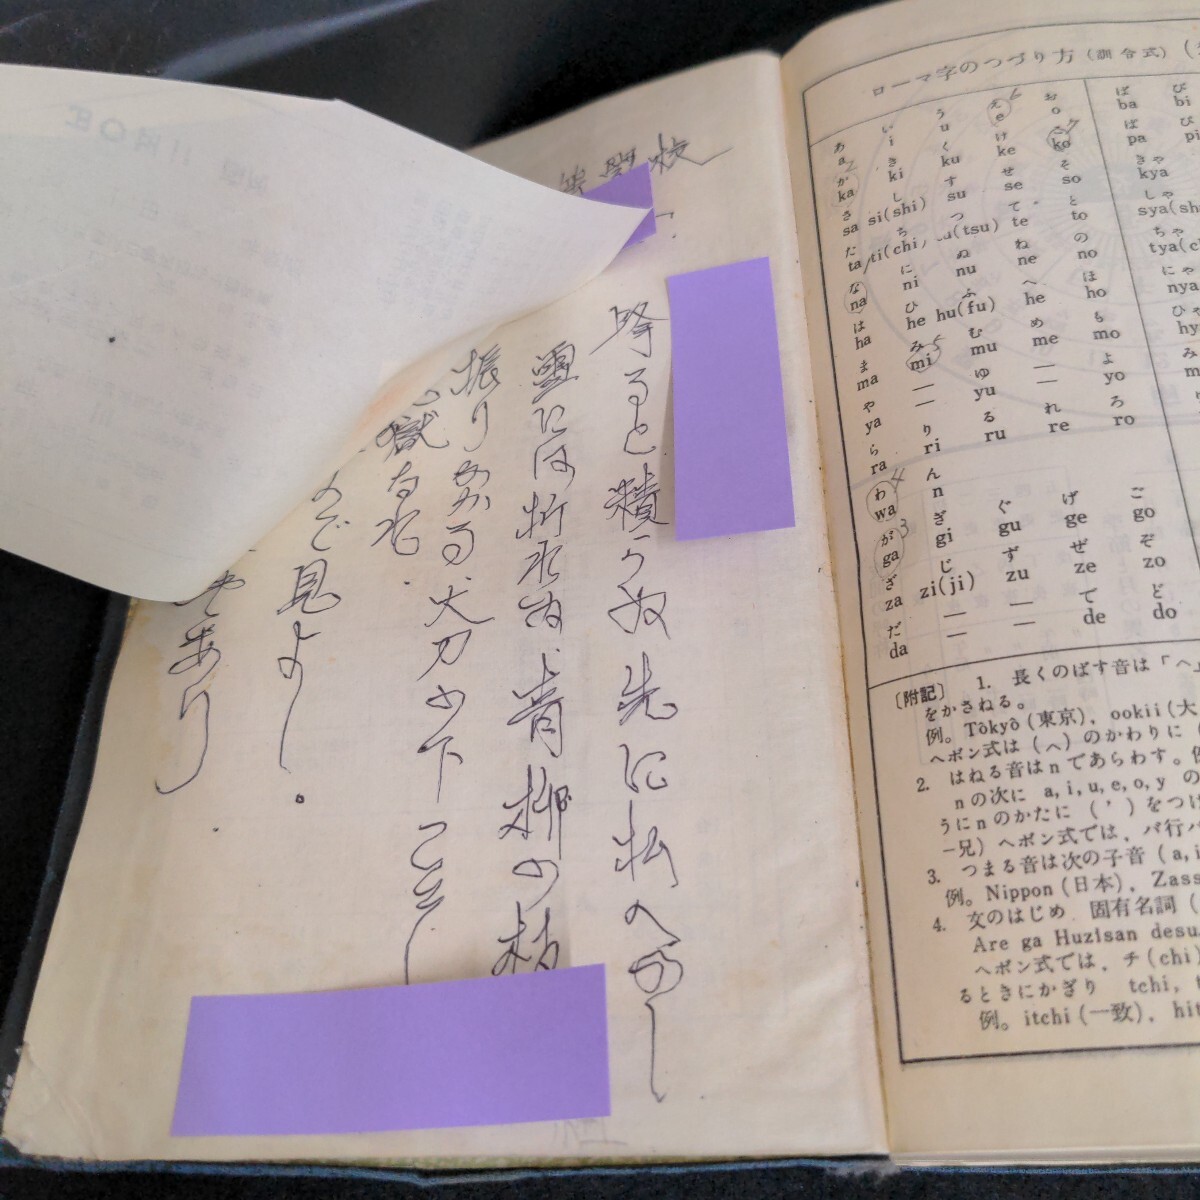 降ると積らぬ先に払へかし
雪には折れぬ青柳の枝
振りかかる太刀の下こそ
獄なれ
で見よ
あり
ローマ字のつづり方（訓令式）
あ い う え お ば び
a i u e o ba bi
か き く け こ ぱ ぴ
ka ki ku ke ko pa pi
さ し す せ そ きゃ
sa si(shi) su se so kya
た ち つ て と しゃ
ta ti(chi) tu(tsu) te to sya(sh
な に ぬ ね の ちゃ
na ni nu ne no tya(c
は ひ ふ へ ほ にゃ
ha he hu(fu) he ho nya
ま み む め も ひゃ
ma mi mu me mo hy
や — ゆ — よ み
ya — yu — yo m
ら り る れ ろ
ra ri ru re ro
わ ん
wa n
が ぎ ぐ げ ご
ga gi gu ge go
ざ じ ず ぜ ぞ
za zi(ji) zu ze zo
だ — — で ど
da — — de do
2
6
7
5
4
3
〔附記〕 1. 長くのばす音は「へ」
をかさねる。
例。Tôkyô(東京)，ookii(大
ヘボン式は（へ）のかわりに（
2. はねる音はnであらわす。例
nの次に a, i, u, e, o, y の
うにnのかたに（'）をつけ
–兄）ヘボン式では，パ行バ
3. つまる音は次の子音（a, i
例。Nippon(日本)，Zass
4. 文のはじめ 固有名詞（
Are ga Huzisan desu
ヘボン式では，チ(chi)
るときにかぎり tchi, t
例。itchi(一致)，hit